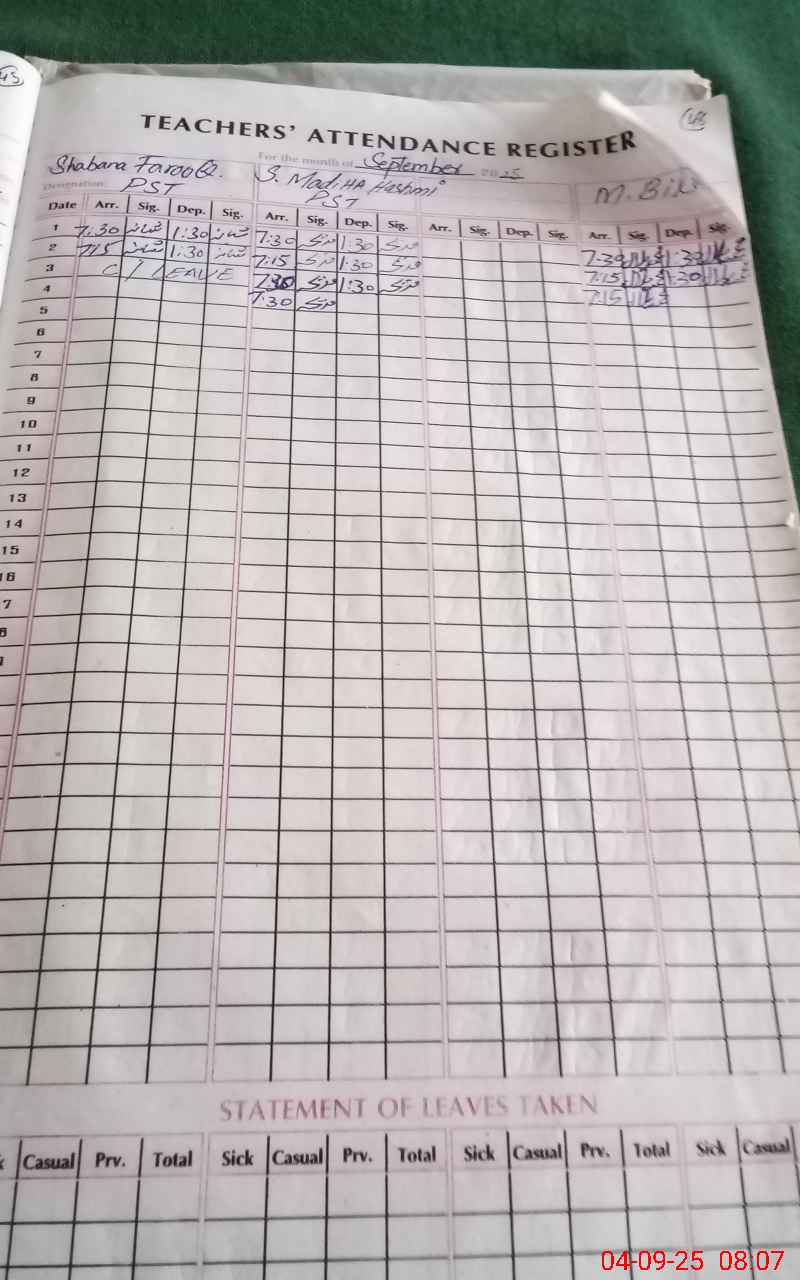 TEACHERS' ATTENDANCE REGISTER
For the month of September 2025
Shabana FarooQ. S. MadiHA Hashmi M.
Designation: PST PST
Date Arr. Sig. Dep. Sig. Arr. Sig. Dep. Sig. Arr. Sig. Dep. Sig. Arr. Sig. Dep. Sig.
1 7:30 شبانہ 1:30 شبانہ 7:30 1:30 7:30 1:30
2 715 شبانہ 1:30 شبانہ 7:15 1:30 7:15 1:30
3 C / LEAVE 7:30 1:30 7:15
4 7:30
5
6
7
8
9
10
11
12
13
14
15
16
7
8
STATEMENT OF LEAVES TAKEN
Casual Prv. Total Sick Casual Prv. Total Sick Casual Prv. Total Sick Casual
04-09-25 08:07